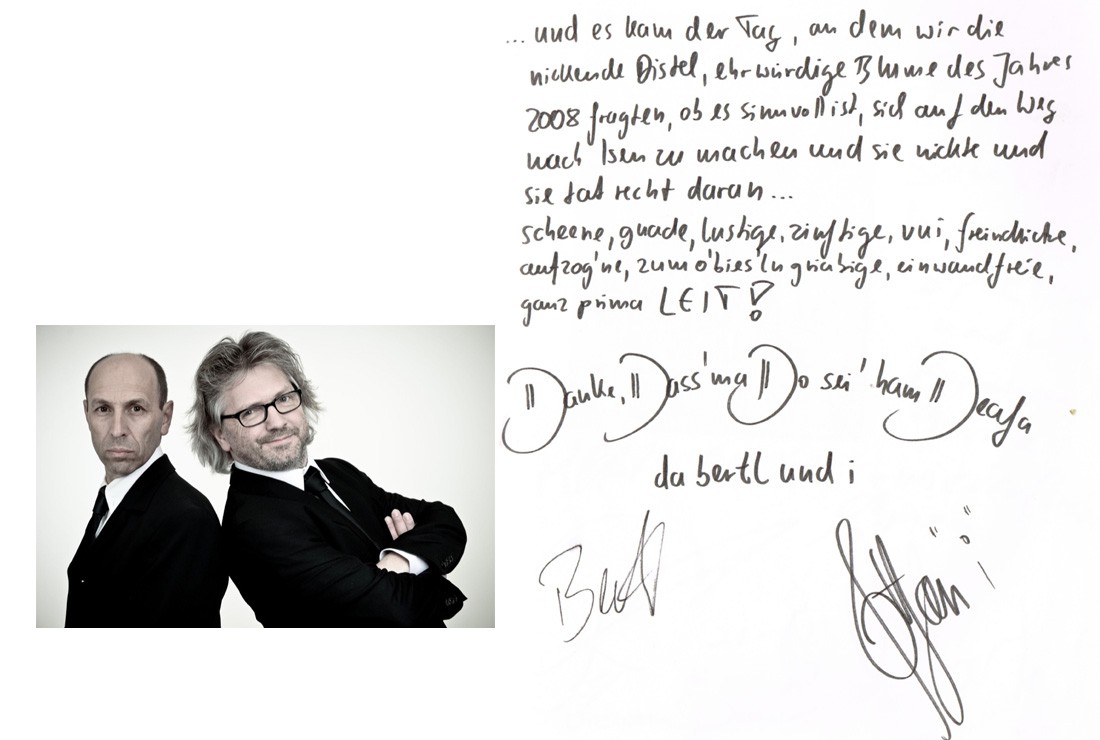 ... und es kam der Tag, an dem wir die
nickende Distel, ehrwürdige Blume des Jahres
2008 fragten, ob es sinnvoll ist, sich auf den Weg
nach Isen zu machen und sie nickte und
sie tat recht daran...
scheene, guade, lustige, zünftige, vui, freindliche,
aufzog'ne, zum o'bies'ln griabige, einwandfreie,
ganz prima LEIT!
Danke, Dass'ma Do sei' ham Deafa
da bertl und i
Bertl
Stefan